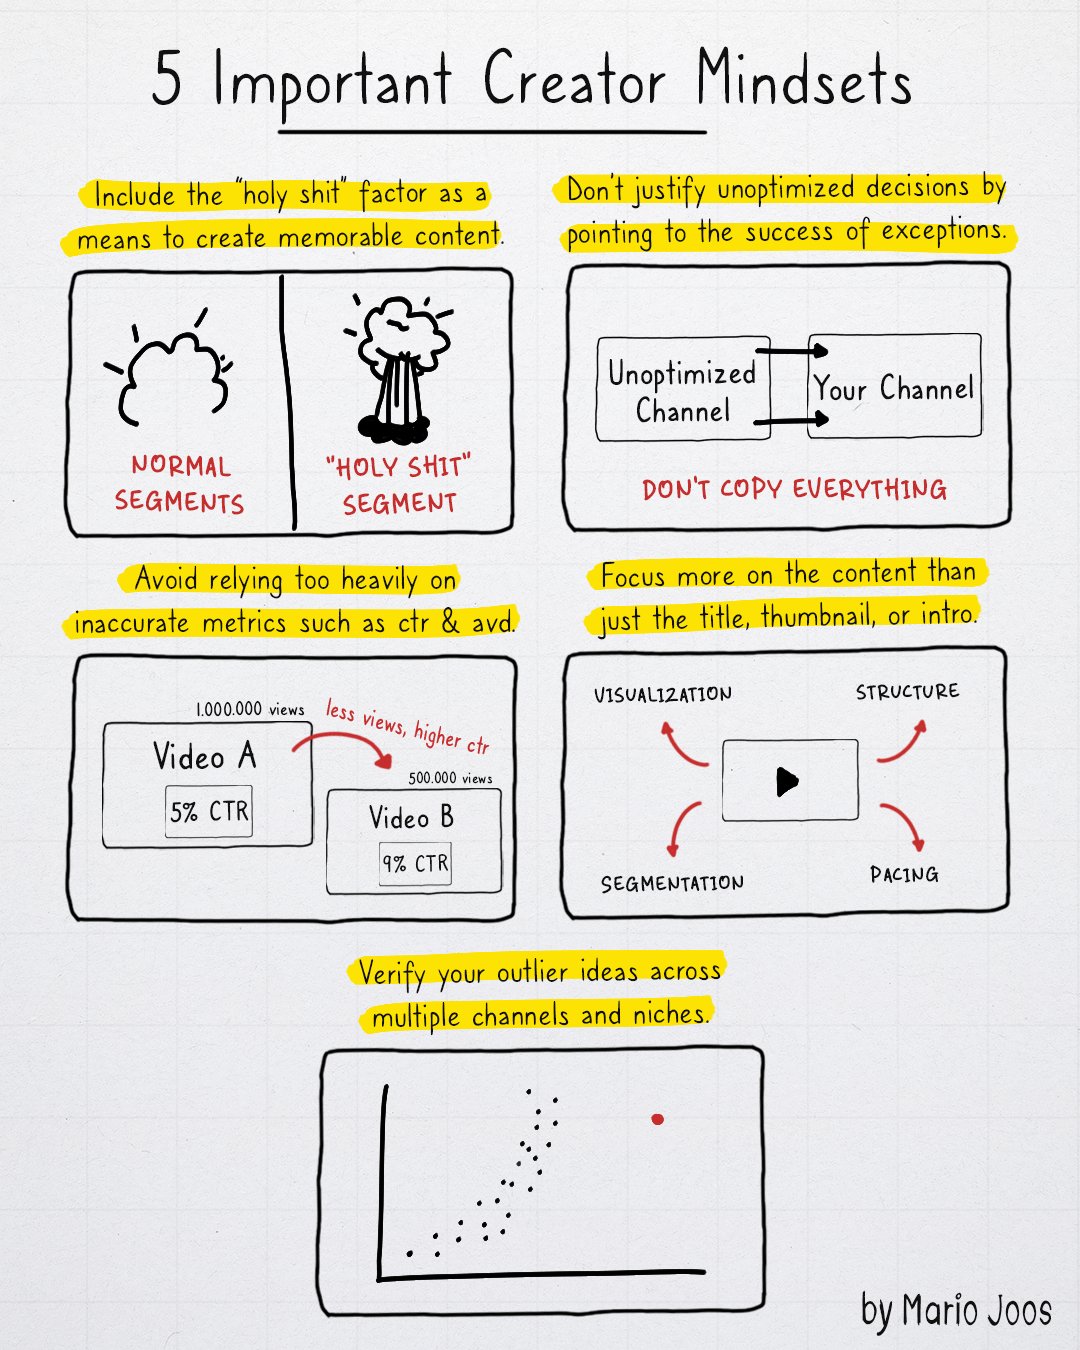 5 Important Creator Mindsets
Include the "holy shit" factor as a
means to create memorable content.
NORMAL
SEGMENTS
"HOLY SHIT"
SEGMENT
Don't justify unoptimized decisions by
pointing to the success of exceptions.
Unoptimized
Channel
Your Channel
DON'T COPY EVERYTHING
Avoid relying too heavily on
inaccurate metrics such as ctr & avd.
1.000.000 views
Video A
5% CTR
less views, higher ctr
500.000 views
Video B
9% CTR
Focus more on the content than
just the title, thumbnail, or intro.
VISUALIZATION
STRUCTURE
SEGMENTATION
PACING
Verify your outlier ideas across
multiple channels and niches.
by Mario Joos